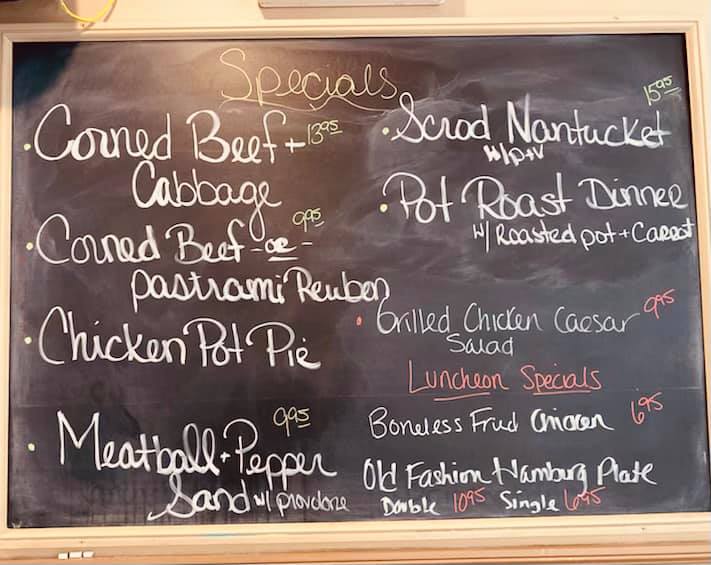 Specials
• Corned Beef + 13.95
Cabbage
• Corned Beef - or - 9.95
Pastrami Reuben
• Chicken Pot Pie
• Meatball + Pepper 9.95
Sand w/ provolone
• Scrod Nantucket 15.95
w/ p + v
• Pot Roast Dinner
w/ Roasted pot + Carrot
• Grilled Chicken Caesar 9.95
Salad
Luncheon Specials
Boneless Fried Chicken 6.95
Old Fashion Hamburg Plate
Double 10.95 Single 6.95